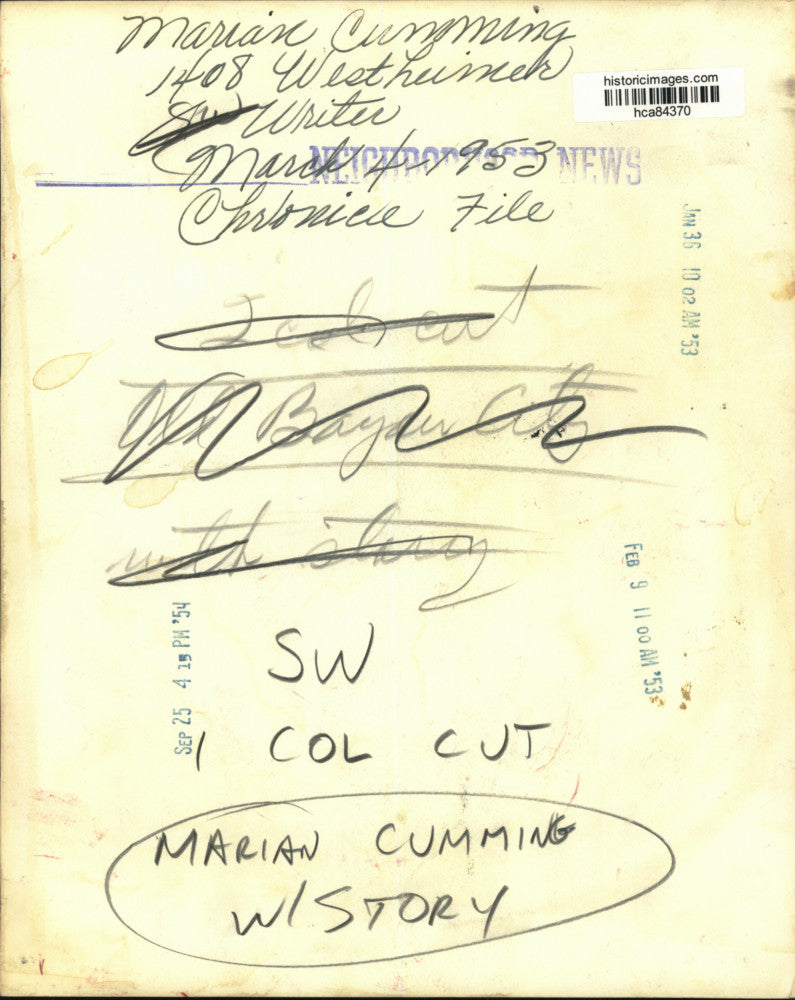 Marian Cumming
1408 Westheimer
historicimages.com
hca84370
SW Writer
NEIGHBORHOOD NEWS
March 4 - 953
Chronicle File
JAN 36 10 02 AM '53
2 col cut
Old Bayou City
with story
FEB 9 11 00 AM '53
SEP 25 4 15 PM '54
SW
1 COL CUT
MARIAN CUMMING
W/STORY